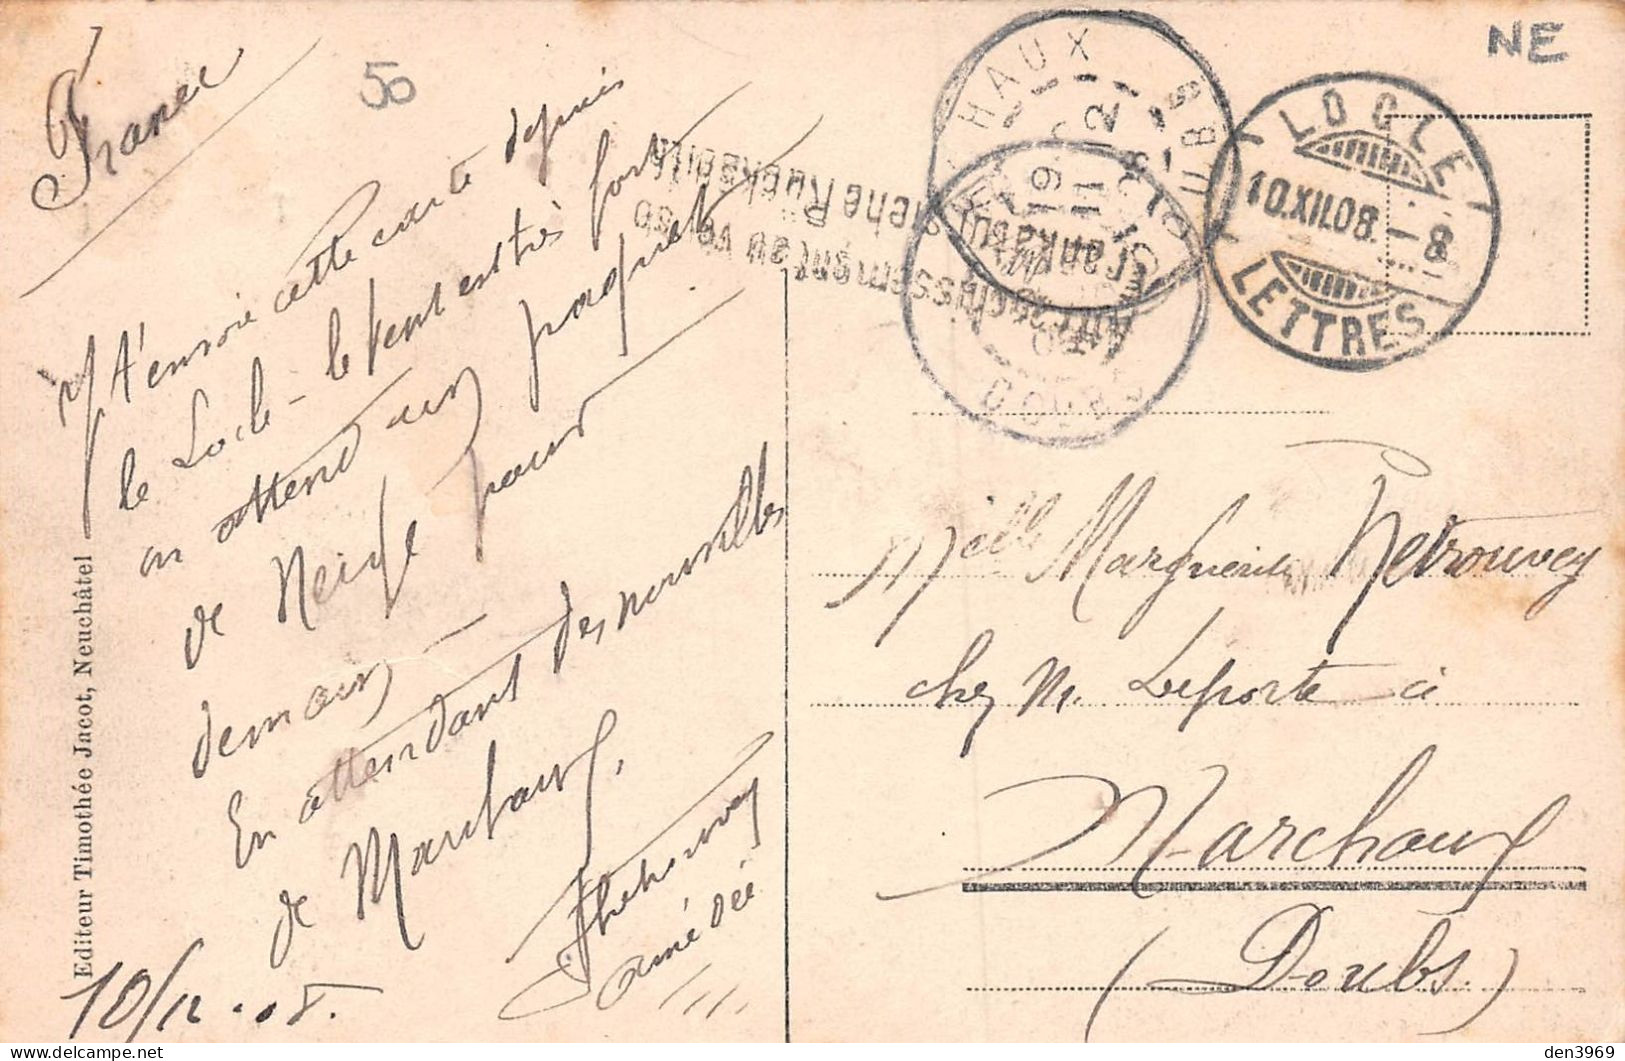 France
50
NE
T'envoie cette carte depuis
le Locle - le Vent est très fort
on attend un paquet
de Neige pour
demain
En attendant des nouvelles
de Marchaux.
Amédée
10/12.08.
Editeur Timothée Jacot, Neuchâtel
HAUX
DOUBS
19
11 - 12
08
LOCLE
10.XII.08. - 8
LETTRES
Affranchissement au verso
Frankatur siehe Rückseite
DOUBS
Melle Marguerite Retrouvey
chez M. Laporte à
Marchaux
(Doubs.)
den3969